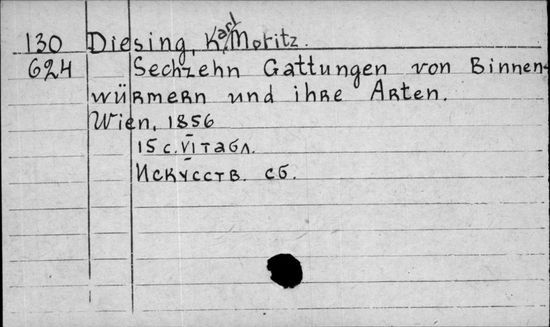 130 Diesing, K. Karl Moritz.
624 Sechzehn Gattungen von Binnen-
würmern und ihre Arten.
Wien, 1856
15 с. VI табл.
Искусств. сб.